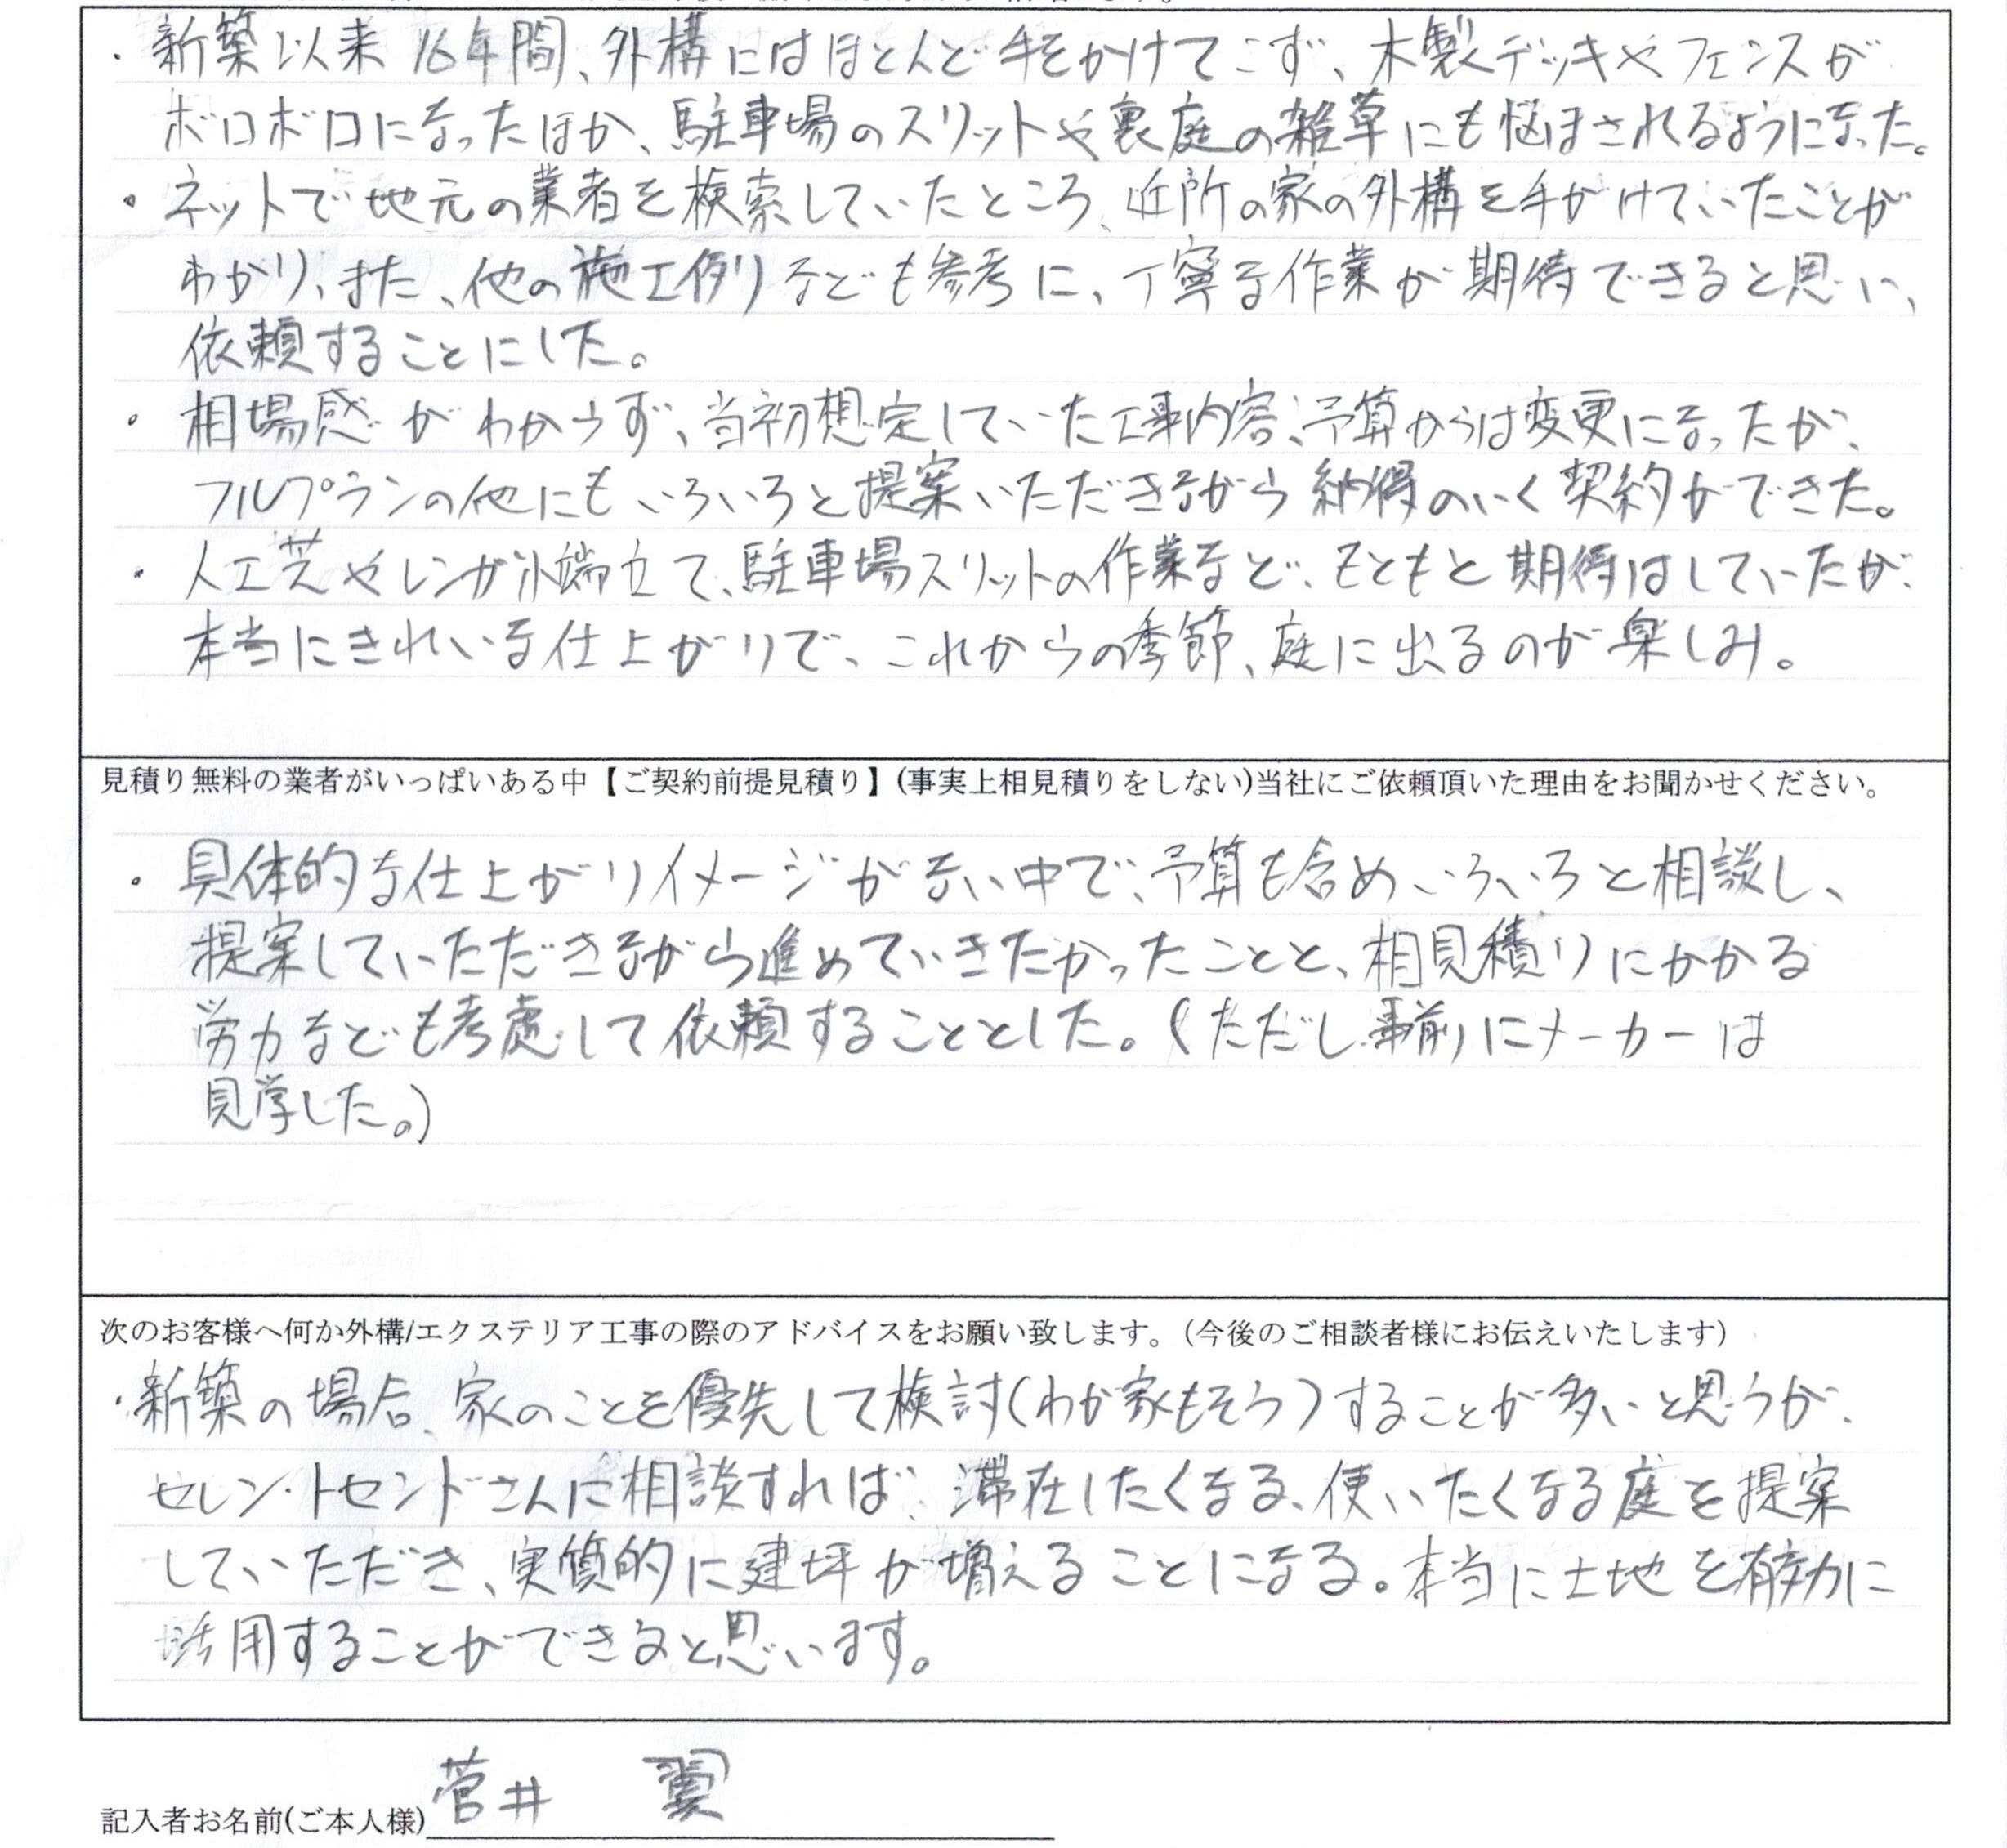 ・新築以来16年間、外構にはほとんど手をかけてこず、木製デッキやフェンスが
ボロボロになったほか、駐車場のスリットや裏庭の雑草にも悩まされるようになった。
・ネットで地元の業者を検索していたところ、近所の家の外構を手がけていたことが
わかり、また、他の施工例なども参考に、丁寧な作業が期待できると思い、
依頼することにした。
・相場感がわからず、当初想定していた工事内容、予算からは変更になったが、
フルプランの他にもいろいろと提案いただきながら納得のいく契約ができた。
・人工芝やレンガ小端立て、駐車場スリットの作業など、もともと期待はしていたが、
本当にきれいな仕上がりで、これからの季節、庭に出るのが楽しみ。
見積り無料の業者がいっぱいある中【ご契約前提見積り】(事実上相見積りをしない)当社にご依頼頂いた理由をお聞かせください。
・具体的な仕上がりイメージがない中で、予算も含めいろいろと相談し、
提案していただきながら進めていきたかったことと、相見積りにかかる
労力なども考慮して依頼することとした。(ただし、事前にメーカーは
見学した。)
次のお客様へ何か外構/エクステリア工事の際のアドバイスをお願い致します。(今後のご相談者様にお伝えいたします)
・新築の場合、家のことを優先して検討(わが家もそう)することが多いと思うが、
セレン・トセンドさんに相談すれば、滞在したくなる、使いたくなる庭を提案
していただき、実質的に建坪が増えることになる。本当に土地を有効に
活用することができると思います。
記入者お名前(ご本人様) 菅井 翼